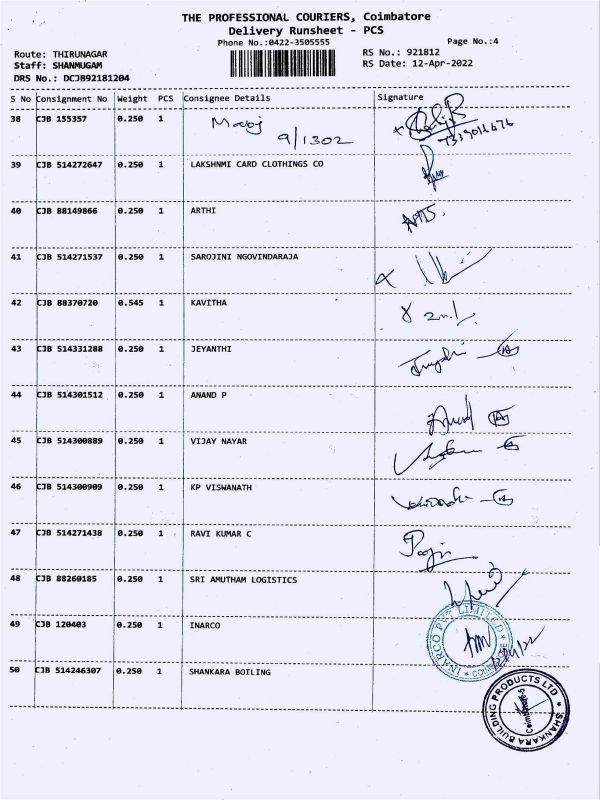 THE PROFESSIONAL COURIERS, Coimbatore
Delivery Runsheet - PCS
Phone No.:0422-3505555
Page No.:4
Route: THIRUNAGAR
RS No.: 921812
Staff: SHANMUGAM
RS Date: 12-Apr-2022
DRS No.: DCJB92181204
S No Consignment No Weight PCS Consignee Details Signature
38 CJB 155357 0.250 1 Maoj
9/1302
39 CJB 514272647 0.250 1 LAKSHNMI CARD CLOTHINGS CO
40 CJB 88149866 0.250 1 ARTHI
41 CJB 514271537 0.250 1 SAROJINI NGOVINDARAJA
42 CJB 88370720 0.545 1 KAVITHA
43 CJB 514331288 0.250 1 JEYANTHI
44 CJB 514301512 0.250 1 ANAND P Anand
45 CJB 514300889 0.250 1 VIJAY NAYAR
46 CJB 514300909 0.250 1 KP VISWANATH
47 CJB 514271438 0.250 1 RAVI KUMAR C
48 CJB 88260185 0.250 1 SRI AMUTHAM LOGISTICS
49 CJB 120403 0.250 1 INARCO
INARCO PVT LIMITED
50 CJB 514246307 0.250 1 SHANKARA BOILING
SHANKARA BUILDING PRODUCTS LTD
Coimbatore-5